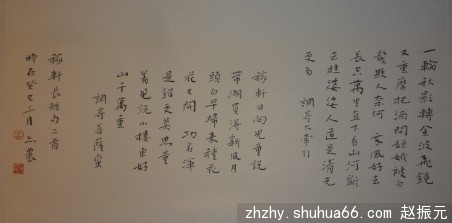 一輪秋影轉金波飛鏡
又重磨把酒問姮娥被白
髮欺人奈何 乘風好去
長空萬里直下看山河斫
去桂婆娑人道是清光
更多 調寄太常引
稼軒日向兒童說
帶湖買得新風月
頭白早歸來種花
花已開 功名渾
是錯更莫思量
著見說小樓東好
山千萬重
調寄菩薩蠻
稼軒長短句二首
時在癸巳三月
zhzhy.shuhua66.com 赵振元